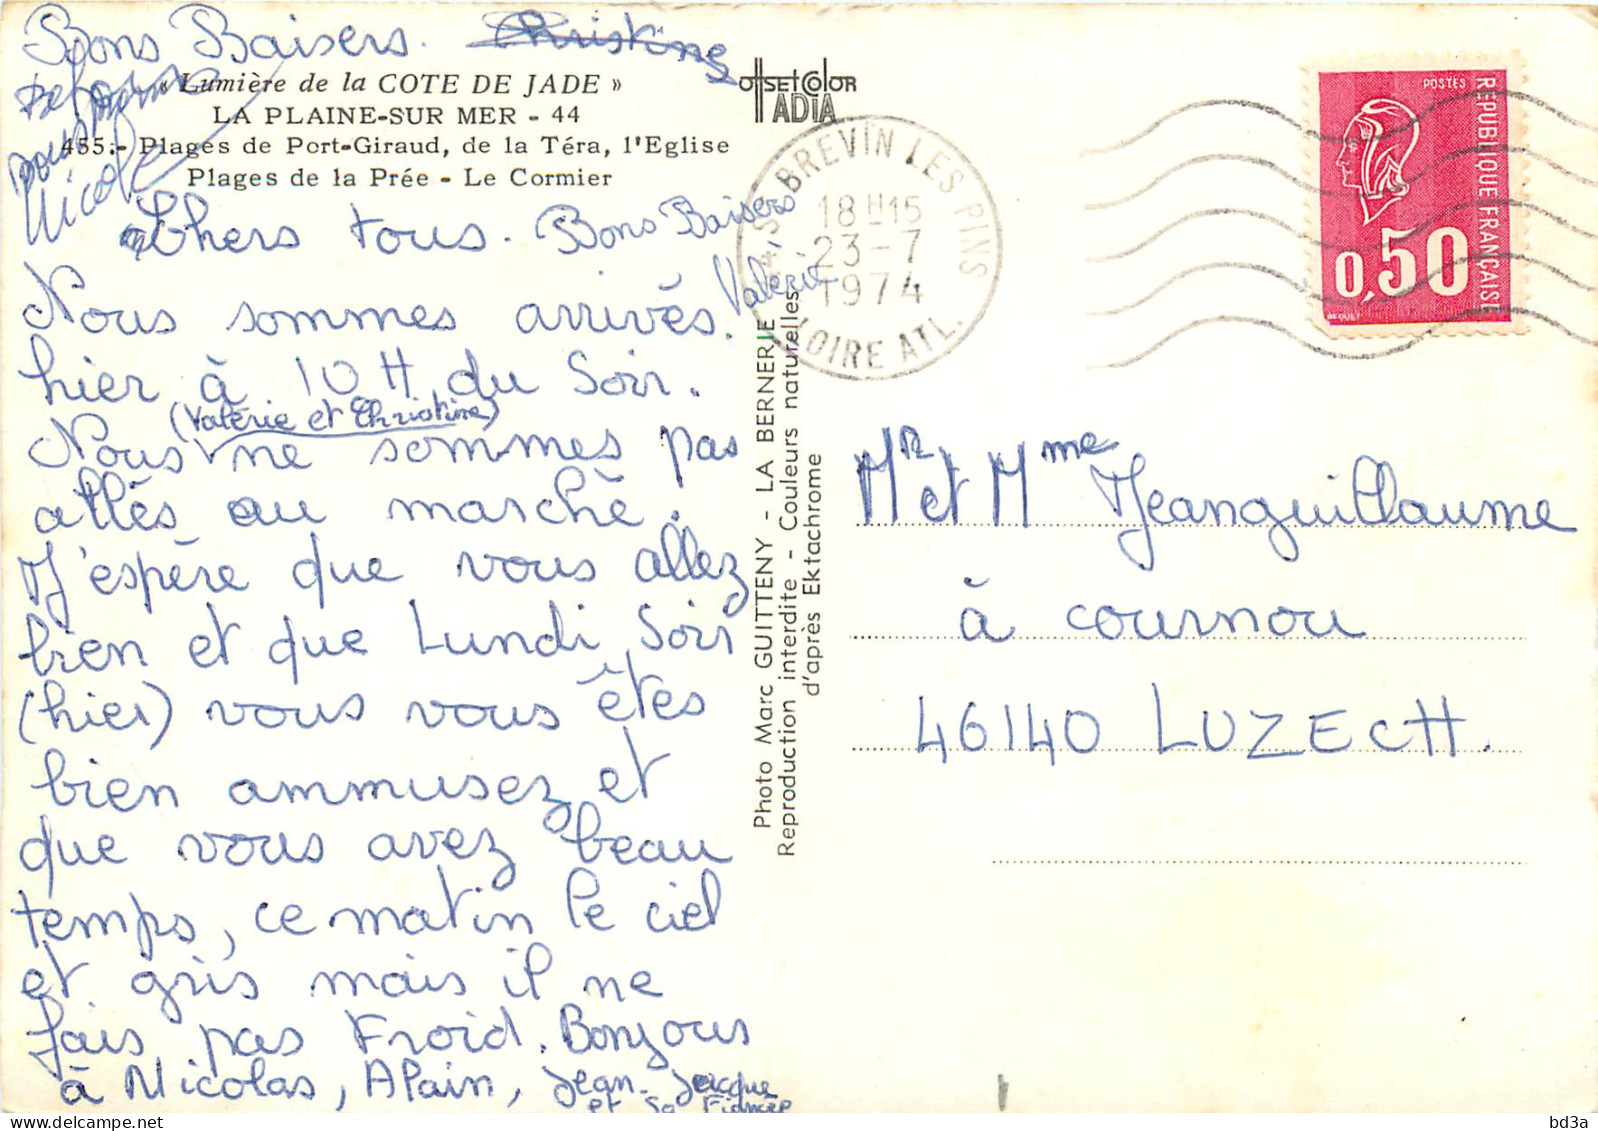 Bons Baisers. Christine
« Lumière de la COTE DE JADE »
LA PLAINE-SUR MER - 44
455.- Plages de Port-Giraud, de la Téra, l'Eglise
Plages de la Prée - Le Cormier
Nicole
Chers tous. Bons Baisers
Valérie
Nous sommes arrivés.
hier à 10 H du Soir.
(Valérie et Christine)
Nous ne sommes pas
allés au marché.
J'espère que vous allez
bien et que Lundi Soir
(hier) vous vous êtes
bien ammusez et
que vous avez beau
temps, ce matin le ciel
et gris mais il ne
fais pas Froid. Bonjours
à Nicolas, Alain, Jean-Jacque
et sa Fiancée
OFFSET COLOR
ADIA
Photo Marc GUITTENY - LA BERNERIE
Reproduction interdite - Couleurs naturelles
d'après Ektachrome
44 S BREVIN LES PINS
18 H 15
23-7
1974
LOIRE ATL.
POSTES
REPUBLIQUE FRANÇAISE
0,50
BEQUET
Mr et Mme Jeanguillaume
à cournou
46140 LUZECH.
bd3a